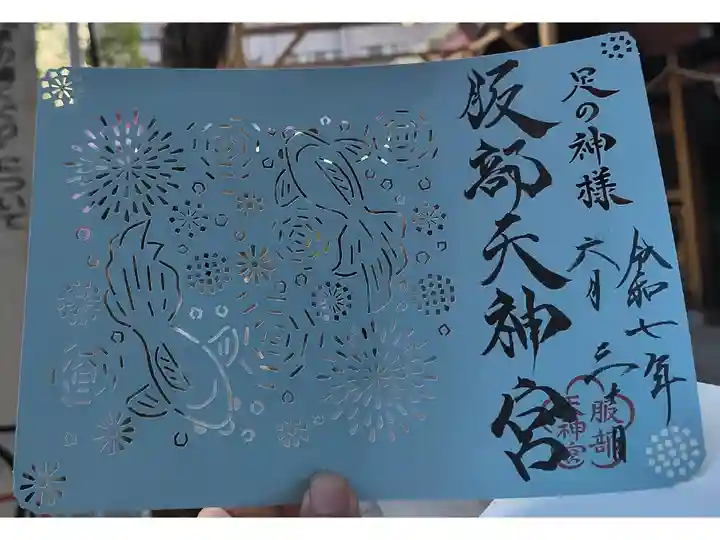 足の神様
服部天神宮
令和七年
六月三十日
服部
天神宮
について